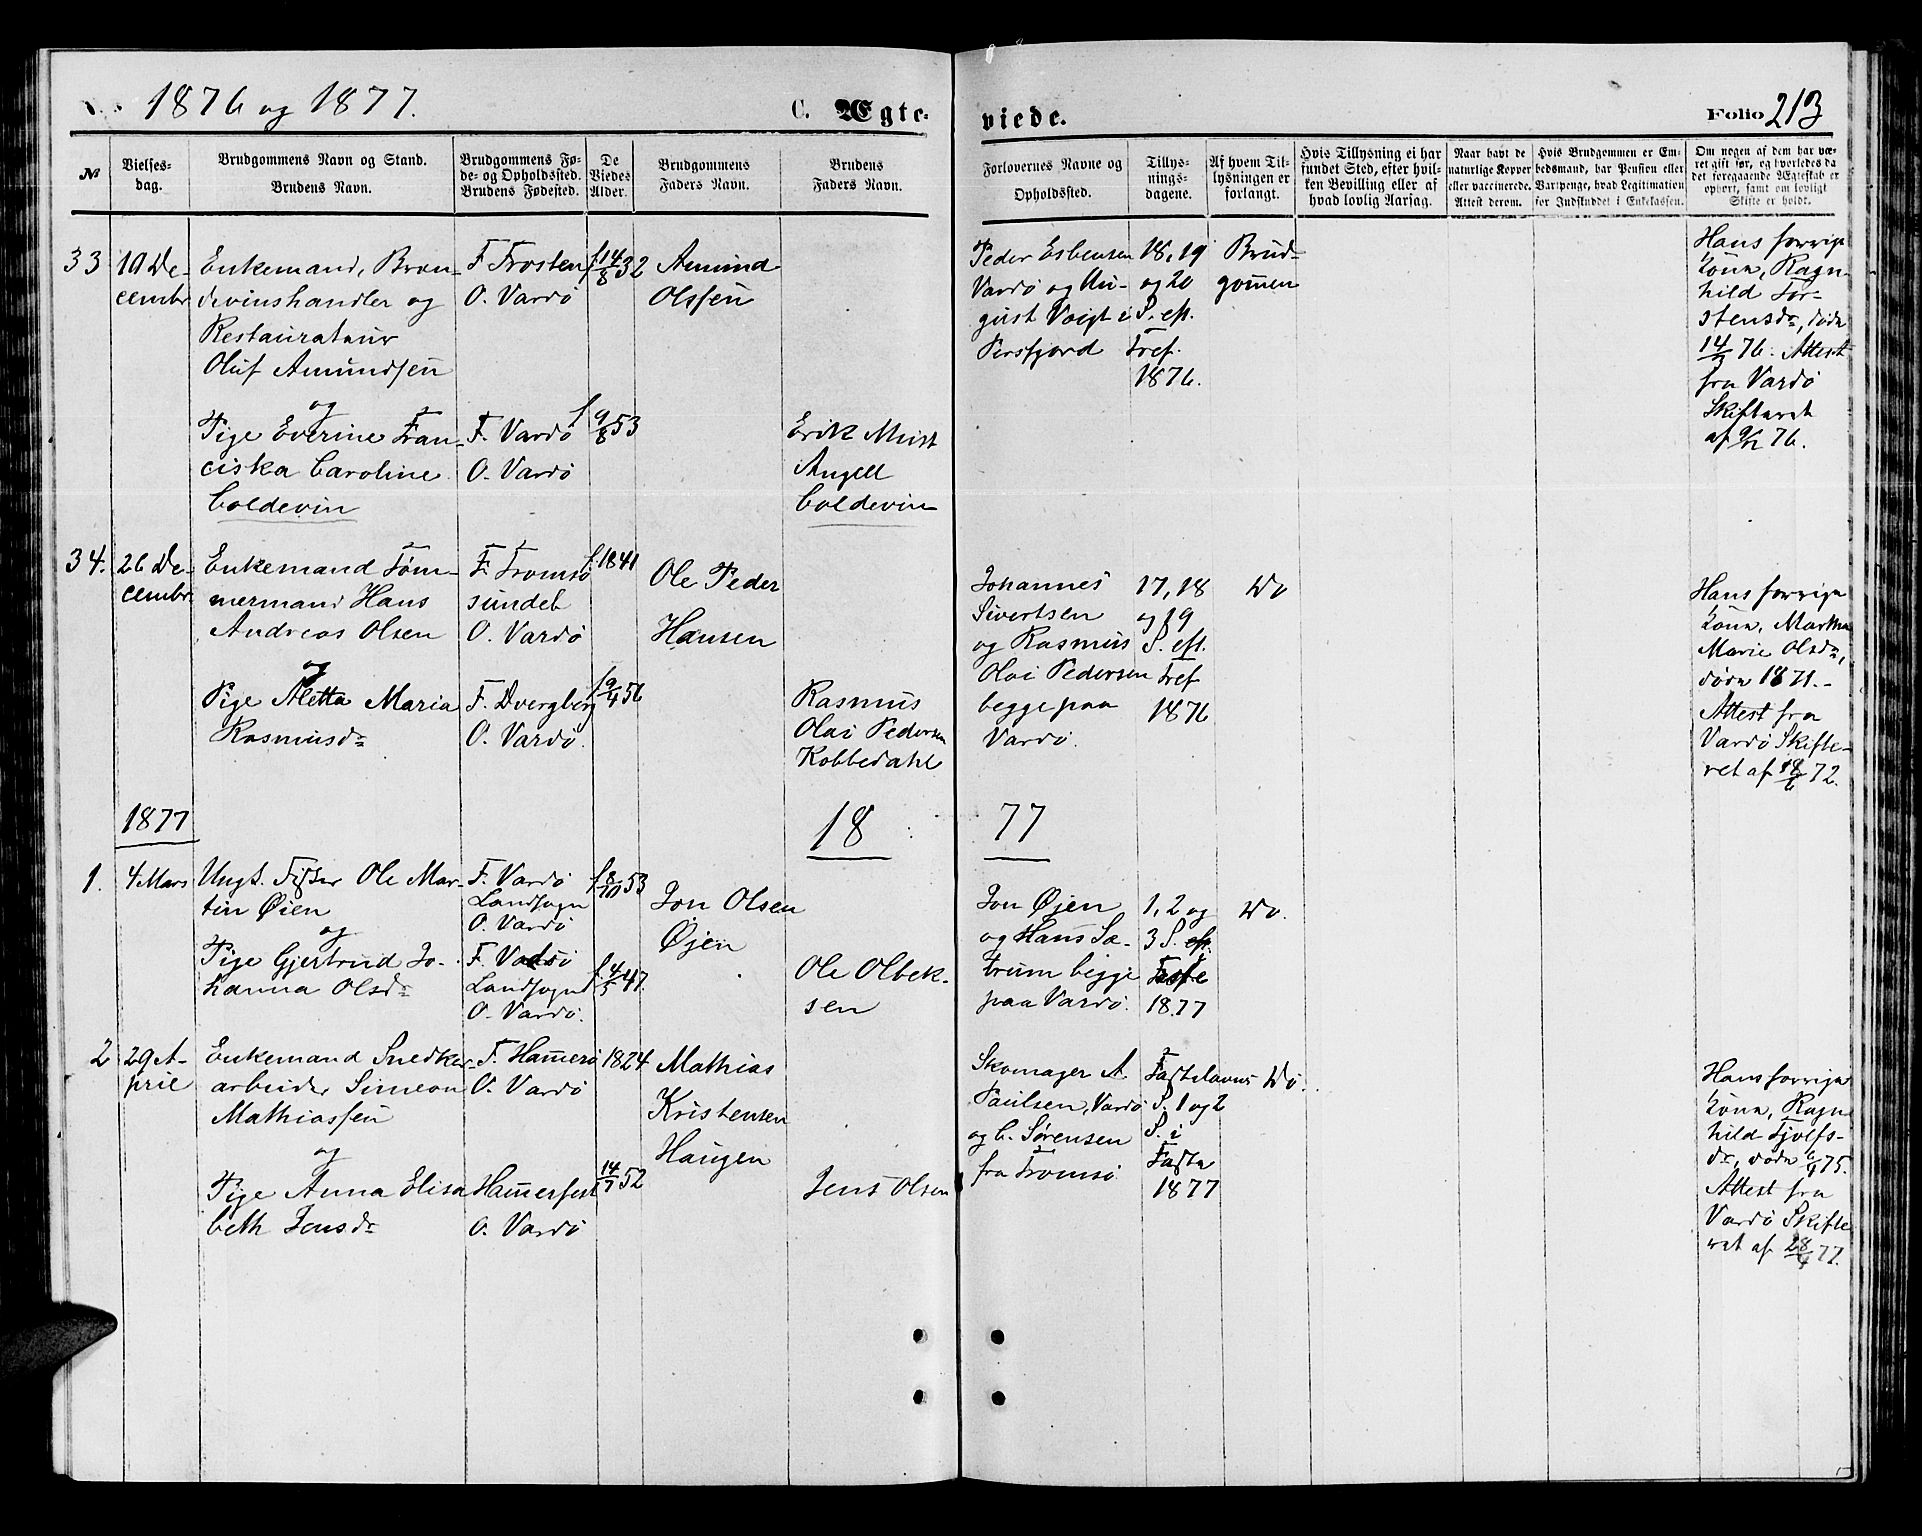 1876 og 1877.
C. Ægte-
viede.
Folio 213
№
Vielses-
dag.
Brudgommens Navn og Stand.
Brudens Navn.
Brudgommens Fø-
de- og Opholdssted.
Brudens Fødested.
De
Viedes
Alder.
Brudgommens
Faders Navn.
Brudens
Faders Navn.
Forlovernes Navne og
Opholdssted.
Tillys-
nings-
dagene.
Af hvem Til-
lysningen er
forlangt.
Hvis Tillysning ei har
fundet Sted, efter hvil-
ken Bevilling eller af
hvad lovlig Aarsag.
Naar havt de
naturlige Kopper
eller vaccinerede.
Attest derom.
Hvis Brudgommen er Em-
bedsmand, har Pension eller
Vartpenge, hvad Legitimation
for Indskuddet i Enkekassen.
Om nogen af dem har væ-
ret gift før, og hvorledes da
det foregaaende Ægteskab er
ophørt, samt om lovligt
Skifte er holdt.
33
10 De-
cembr
Enkemand, Bræn-
devinshandler og
Restauratør
Oluf Amundsen
og
Pige Everine Fran-
ciska Caroline
Coldevin
F. Trosten
O. Vardø
F. Vardø
O. Vardø
f 14/8 32
f 9/8 53
Amund
Olssen
Erik Must
Angell
Coldevin
Peder Esbensen
Vardø og Au-
gust Voigt i
Persfjord
18, 19
og 20
S. eft.
Tref.
1876.
Brud-
gomen
Hans forrige
Kone, Ragn-
hild Tor-
stensdr, døde
76. Attest
fra Vardø
Skifteret
af 9/12 76.
34.
26 De-
cembr.
Enkemand Tøm-
mermand Hans
Andreas Olsen
og
Pige Aletta Maria
Rasmusdr
F. Tromsø
sundet
O. Vardø
F. Dverberg
O. Vardø.
f. 1841
f 9/4 56
Ole Peder
Hansen
Rasmus
Olai Pedersen
Kobbedahl
Johannes
Sivertsen
og Rasmus
Olai Pedersen
begge paa
Vardø.
17, 18
og 19
S. eft.
Tref
1876
Do
Hans forrige
Kone, Martha
Marie Olsdr,
døde 1871.-
Attest fra
Vardø Skifte-
ret af 18/6 72.
1877
18
77
1.
4 Mars
Ungk. Fisker Ole Mar-
tin Øien
og
Pige Gjertrud Jo-
hanna Olsdr
F. Vardø
Landsogn
O. Vardø
F. Vadsø
Landsogn
O. Vardø.
f 8/10 53
f. 4/5 47.
Jon Olsen
Øjen
Ole Olbek-
sen
Jon Øjen
og Hans Sæ-
trum begge
paa Vardø.
1, 2 og
3 S.
Faste
1877
Do.
2
29 A-
pril
Enkemand Snedker-
arbeider Simeon
Mathiassen
og
Pige Anna Elisa
beth Jensdr
F. Hamerø
O. Vardø
Hamerfest
O. Vardø
1824
14/7 52
Mathias
Kristensen
Haugen
Jens Olsen
Skomager A.
Paulsen, Vardø
og C. Sørensen
fra Tromsø.
Fastelavns
S. 1 og 2
S. i
Faste
1877
Do.
Hans forrige
Kone, Ragn
hild Tjolfs-
dr, døde 6/4 75.
Attest fra
Vardø Skifte
ret af 28/4 77.